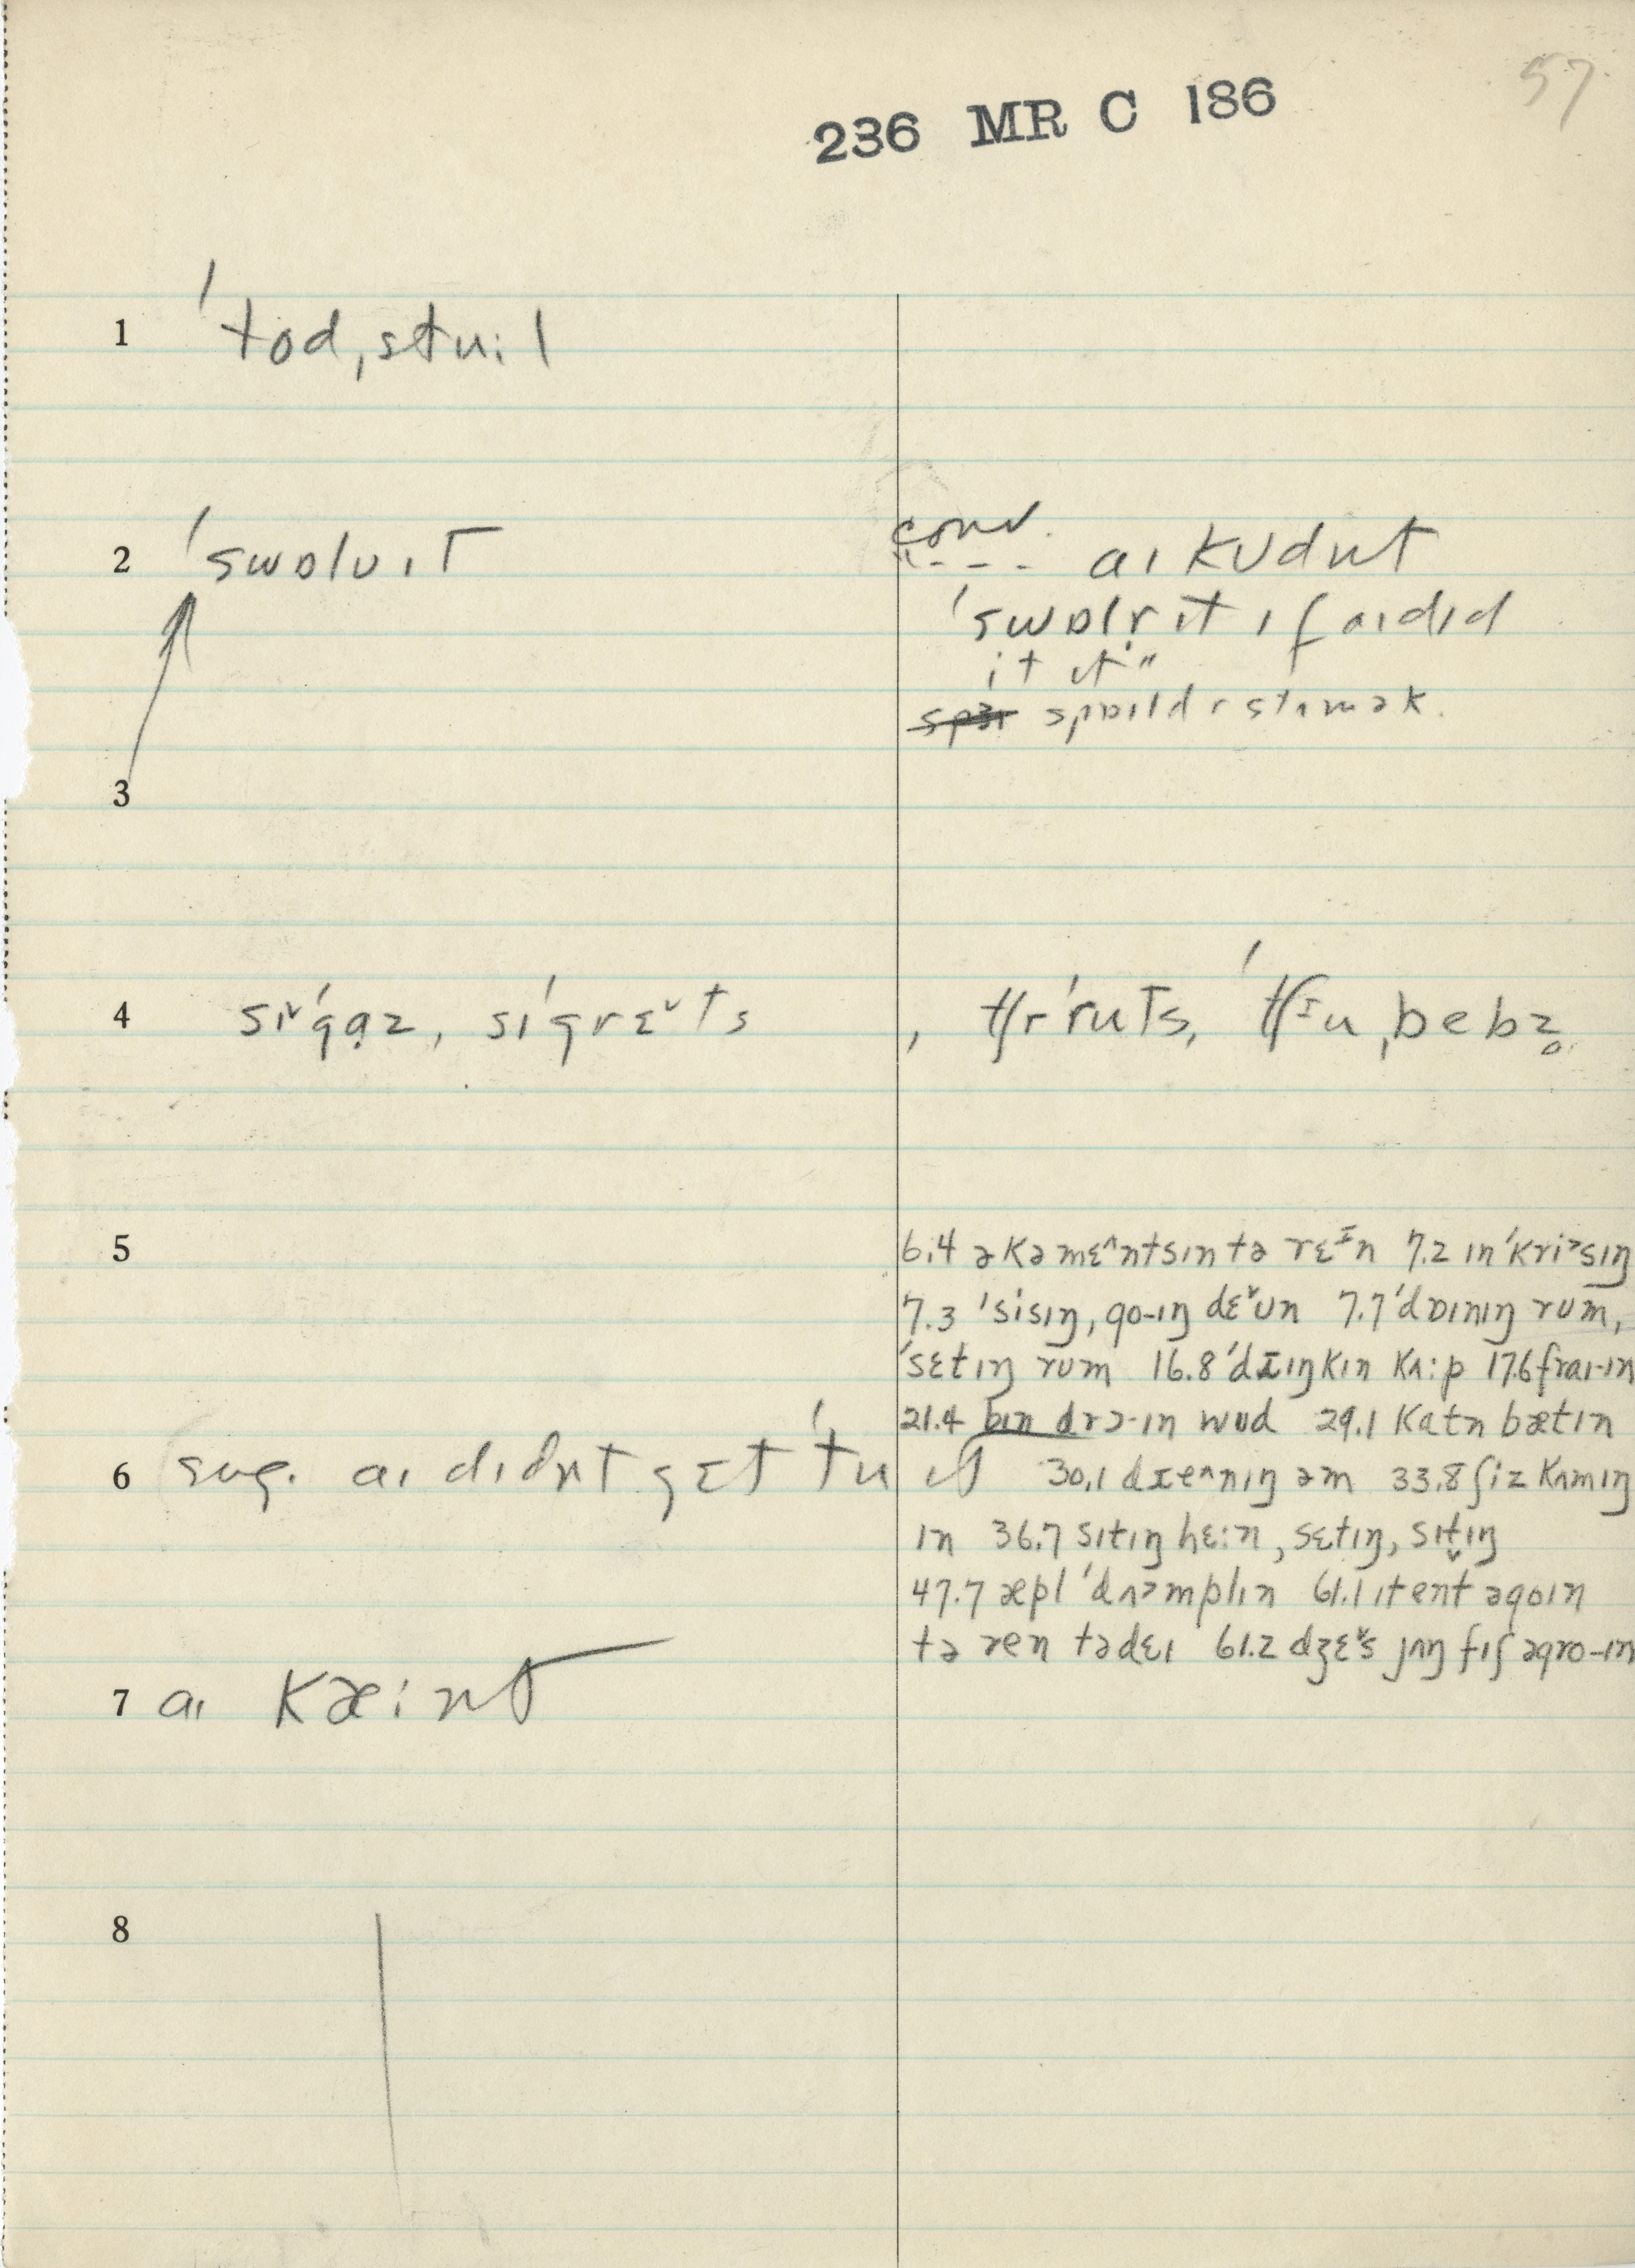 57.
236 MR C 186
1 ˈtod,stuːl
2 ˈswɒlʊ ɪt
conv.
"--- aɪ kʊdn̩t
ˈswɒlr̩ ɪt ɪf aɪ dɪd
it ɪt"
spɒɪld r stʌmək.
3
4 sɪ˅ˈgɑz, sɪˈgrɛ˅ts, tʃrˈruts, ˈtʃɪu,bebz̥
5
6.4 əkəmɛ^ntsɪntə rɛɪn 7.2 ɪnˈkri>sɪŋ
7.3 ˈsisɪŋ, go-ɪŋ dɛ˅ʊn 7.7 ˈdɒɪnɪŋ rum,
ˈsɛtɪŋ rum 16.8 ˈdɪɪŋkɪn kʌːp 17.6 fraɪ-ɪn
21.4 bɪn drɔ-ɪn wud 29.1 katn bætɪn
6 sug. aɪ dɪdn̩t gɛt ˈtu ɪt
30.1 dɪe^nɪŋ əm 33.8 ʃiz kʌmɪŋ
ɪn 36.7 sɪtɪŋ hɛːn, sɛtɪŋ, sɪt̬ɪŋ
47.7 æpl ˈdʌ>mplɪn 61.1 ɪtent əgoɪn
tə ren tədɛɪ 61.2 dʒɛ˅s jʌŋ fɪʃ əgro-ɪn
7 aɪ kæːnt
8